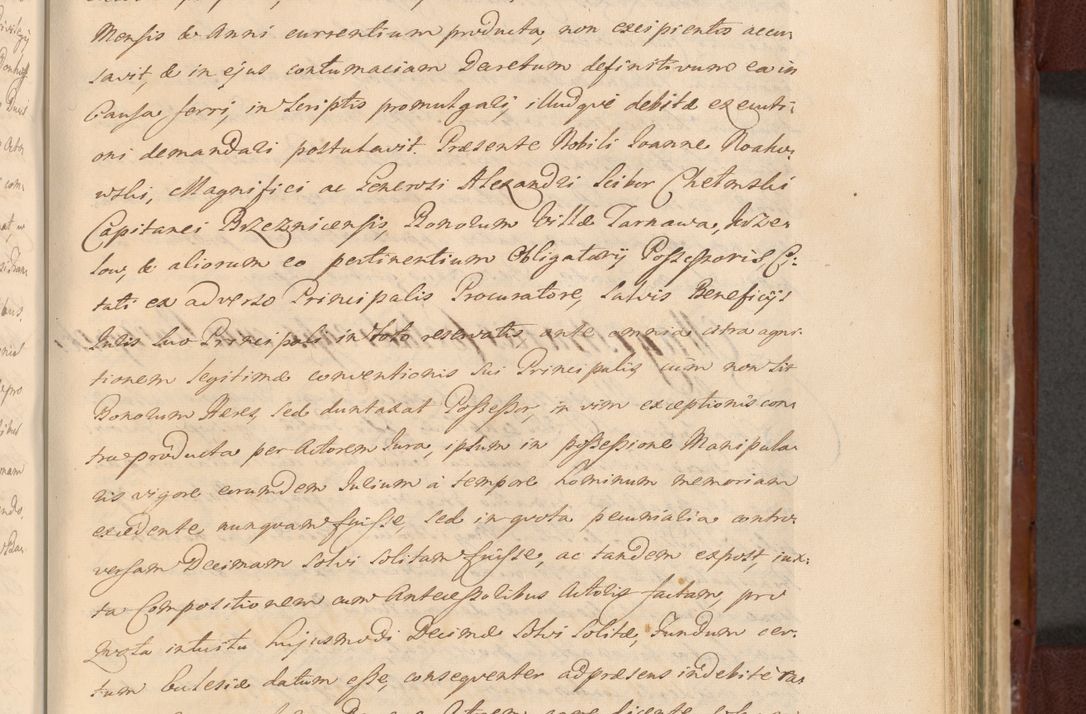 Mensis & Anni currentium producta, non excipientis accu-
savit, & in ejus contumaciam Decretum definitivum ea in
Causa ferri, in scriptis promulgari, illudque debitæ executi-
oni demandari postulavit. Præsente Nobili Joanne Noaku-
wski, Magnifici ac Generosi Alexandri Scibor Chełmski
Capitanei Brzeznicensis, Bonorum Villæ Tarnawa,
low, & aliorum eo pertinentium Obligatorij Possessoris, Ci-
tati ex adverso Principalis Procuratore, Salvis Beneficijs
Juris suo Principali in toto reservatis, ante omnia citra agni-
tionem legitimæ conventionis sui Principalis, cum non sit
Bonorum Heres, sed duntaxat Possessor, in vim exceptionis con-
tra producta per Actorem Jura, ipsum in possessione Manipula-
ris vigore eorumdem Jurium à tempore hominum memoriam
excedente nunquam fuisse, sed in quota pecuniaria contro-
versam Decimam solvi solitam fuisse, ac tandem expost, jux-
ta Compositionem cum Antecessoribus Actoris factam, pro
quota intuitu hujusmodi Decimæ solvi solitæ, Fundum cer-
tum Ecclesiæ datum esse, consequenter ad præsens indebitè